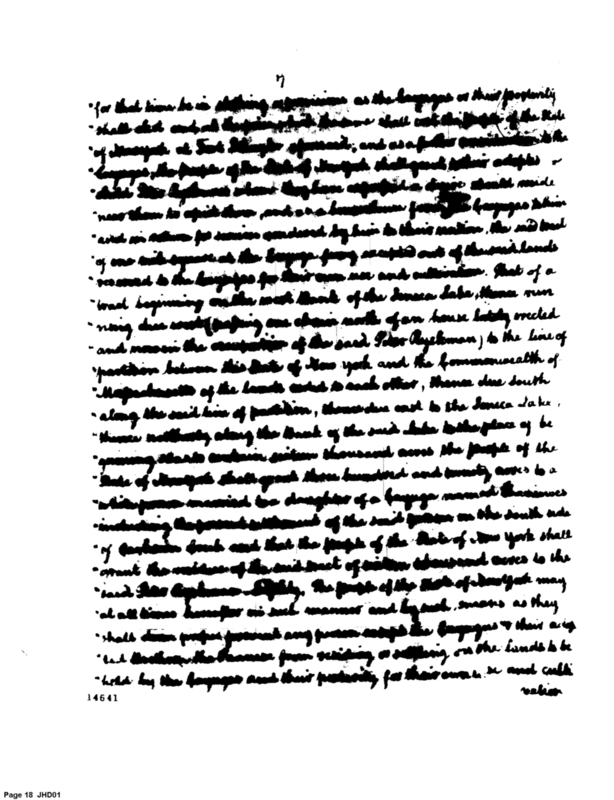 7
"for that time be in clothing or provisions as the Cayugas or their posterity
"shall elect and at the shall the People of the State
"of New York at Fort aforesaid; and as a further to the
"Cayugas, the people of the State of New York shall grant to their adopted
"child Peter Ryckman whom they have expressed a desire should reside
"near them to assist them, and as a benevolence from the Cayugas to him
"and in return for services rendered by him to their nation, the said tract
"of one mile square at the Cayuga ferry excepted out of the said lands
"reserved to the Cayugas for their own use and cultivation. That of a
"tract beginning on the west Bank of the Seneca Lake, thence run
"ning due west (passing one chain north of an house lately erected
"and now in the occupation of the said Peter Ryckman) to the line of
"partition between this State of New York and the Commonwealth of
"Massachusetts of the lands ceded to each other, thence due South
"along the said line of partition, thence due east to the Seneca Lake,
"thence northerly along the Bank of the said Lake to the place of be
"ginning to contain sixteen thousand acres the People of the
"State of New York shall grant three hundred and twenty acres to a
"white person married to a daughter of a Cayuga named
"including the present settlement of the said person on the south side
"of Creek and that the people of the State of New York shall
"grant the residue of the said tract of sixteen thousand acres to the
"said Peter Ryckman The people of the State of New York may
"at all times hereafter in such manner and by such means as they
"shall deem proper prevent any person except the Cayugas & their adop
"ted Brethren the from residing or settling on the lands to be
"held by the Cayugas and their posterity for their own use and culti
vation
14641
Page 18 JHD01